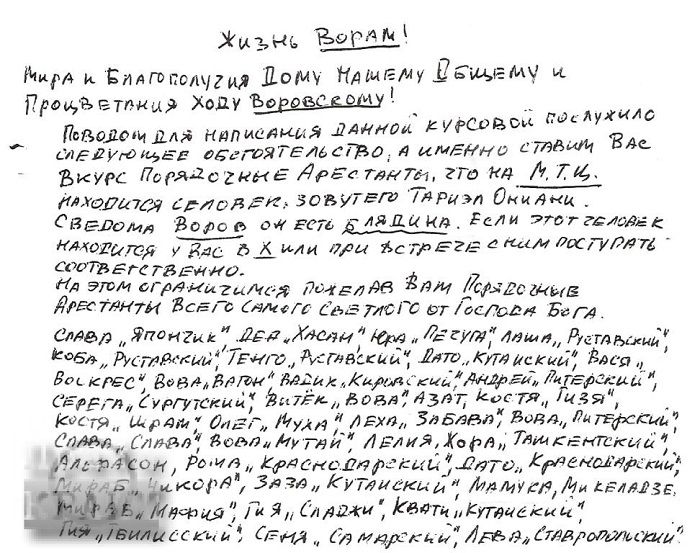 Жизнь Ворам!
Мира и Благополучия Дому Нашему Общему и
Процветания Ходу Воровскому!
Поводом для написания данной курсовой послужило
следующее обстоятельство, а именно ставим Вас
вкурс Порядочные Арестанты, что на М.Т.Ц.
находится селовек, зовутего Тариэл Ониани.
Сведома Воров он есть блядина. Если этот человек
находится у Вас в Х или при встрече сним поступать
соответственно.
На этом ограничимся пожелав Вам Порядочные
Арестанты Всего Самого Светлого от Господа Бога.
Слава „Япончик", Дед „Хасан", Юра „Печуга", Лаша „Руставский",
Коба „Руставский", Тенго „Руставский", Дато „Кутаиский", Вася „
Воскрес", Вова „Вагон", Вадик „Кировский", Андрей „Питерский",
Серега „Сургутский", Витёк „Вова", Азат, Костя „Гизя",
Костя „Шрам", Олег „Муха", Леха „Забава", Вова „Питерский",
Слава „Слава", Вова „Мутай", Лелия, Хора „Ташкентский",
Альфасон, Рома „Краснодарский", Дато „Краснодарский",
Мираб „Чикора", Заза „Кутаиский", Мамука, Микеладзе,
Мираб „Мафия", Гия „Сладжи", Квати „Кутаиский",
Гия „Тбилисский", Сеня „Самарский", Лева „Ставропольский".